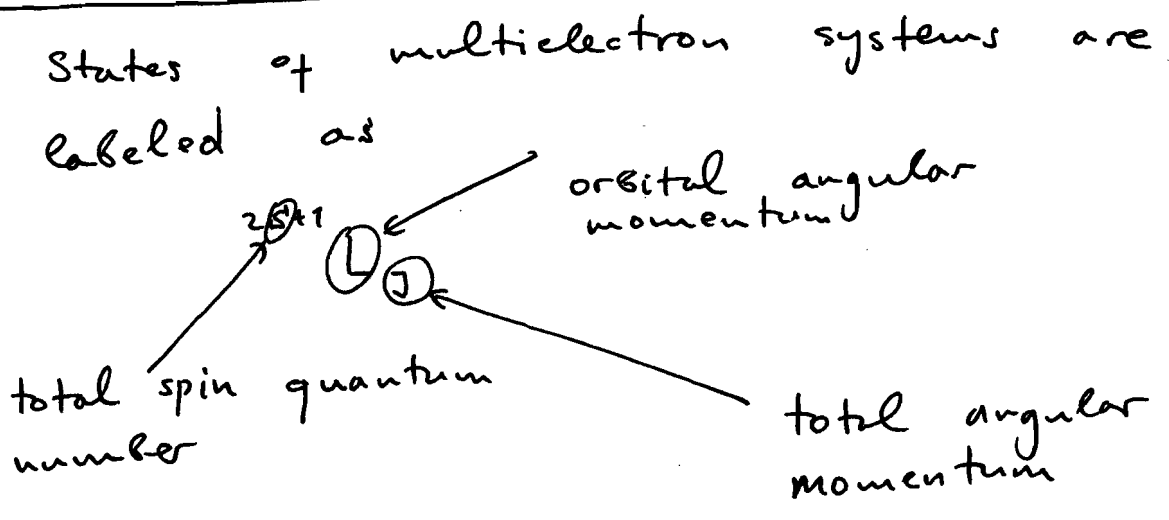 States of multielectron systems are
labeled as
orbital angular
momentum
2S+1
L
J
total spin quantum
number
total angular
momentum